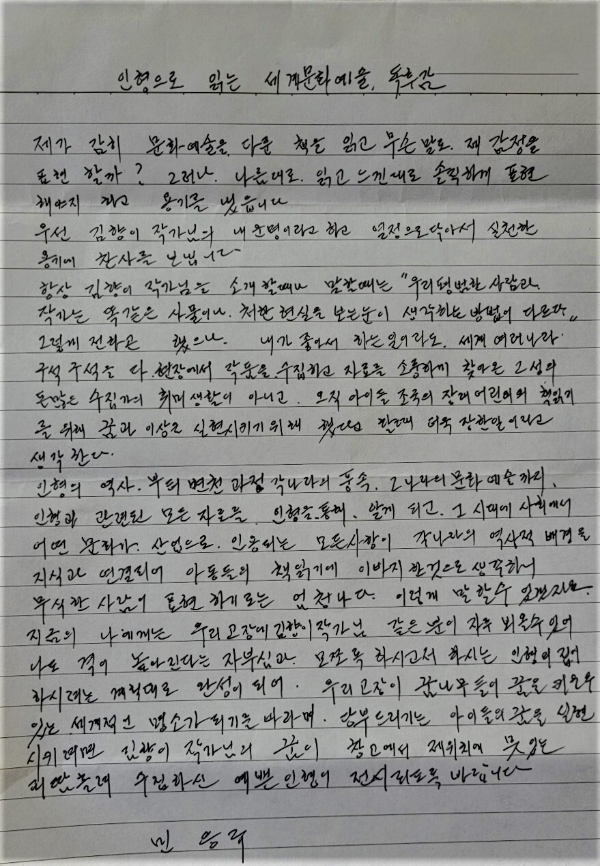 인형으로 읽는 세계문화예술, 독후감
제가 감히 문화예술을 다룬 책을 읽고 무슨 말로. 제 감정을
표현 할까? 그러나. 나름대로. 읽고 느낀대로 솔직하게 표현
해보자 하고 용기를 냈읍니다
우선 김향이 작가님의 내 운명이라고 하고 열정으로 실천한
용기에 찬사를 보냅니다
항상 김향이 작가님을 소개 할때나 말할때는 "우리 평범한 사람과.
작가는 똑같은 사물이나. 처한 현실을 보는눈이 생각하는 방법이 다르다"
그렇게 했으나. 내가 좋아서 하는 일이라도. 세계 여러나라
구석 구석을 다. 현장에서 수집하고 자료를 소중하게 찾아온 그 정성의
돈많은 수집가의 취미생활이 아니고. 오직 아이들 조국의 장래 어린이의 책읽기
를 위해 꿈과 이상을 실현시키기 위해 했다고 할때 더욱 장한일이라고
생각 한다.
인형의 역사. 부터 변천 과정 각나라의 풍속. 그 나라의 문화 예술까지.
인형과 관련된 모든 자료를. 인형을 통해. 알게 되고. 그 시대에 사회에서
어떤 문화가. 산업으로. 모든사항이 각나라의 역사적 배경을
지식과 연결되어 아동들의 책읽기에 이바지 한것으로 생각하니
무식한 사람이 표현 하기로는 엄청나다. 이렇게 말할수 있겠지요.
지금의 나에게는 우리고장에 김향이 작가님 같은 분이 자주 뵈올수 있어
나도 격이 높아진다는 자부심과. 하시고저 하시는 인형의 집이
하시려는 계획대로 완성이 되어. 우리고장이 꿈나무들이 꿈을 키울수
있는 세계적인 명소가 되기을 바라며. 당부드리기는 아이들의 꿈을 실현
시키려면 김향이 작가님의 꿈이 창고에서 제위치에 못있는
수집하신 예쁜 인형이 전시되도록 바랍니다
민